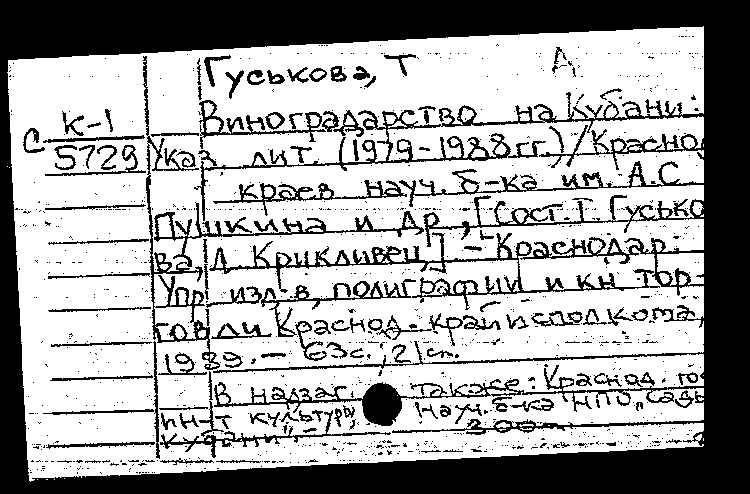 Гуськова, Т А
Виноградарство на Кубани:
К-1
С 5729 Указ. лит. (1979-1988 гг.) / Краснод.
краев науч. б-ка им. А.С
Пушкина и др., [Сост. Т. Гусько
ва, Д. Крикливец,] - Краснодар:
Упр изд-в, полиграфии и кн тор-
говли Краснод. крайисполкома,
1989. - 63с.; 21 см.
В надзаг. также: Краснод. гос
ин-т культуры, Науч. б-ка НПО "Сады
Кубани". - 200